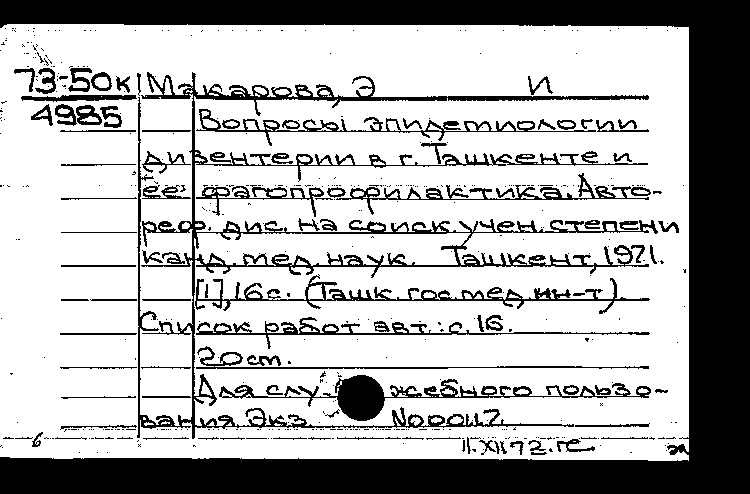 73-50к Макарова, Э И
4985
Вопросы эпидемиологии
дизентерии в г. Ташкенте и
ее фагопрофилактика. Авто-
реф. дис. на соиск. учен. степени
канд. мед. наук. Ташкент, 1971.
[1], 16 с. (Ташк. гос. мед. ин-т).
Список работ авт.: с. 16.
20 ст.
Для служебного пользо-
вания Экз. №00117.
6
11.XII 72. гс.